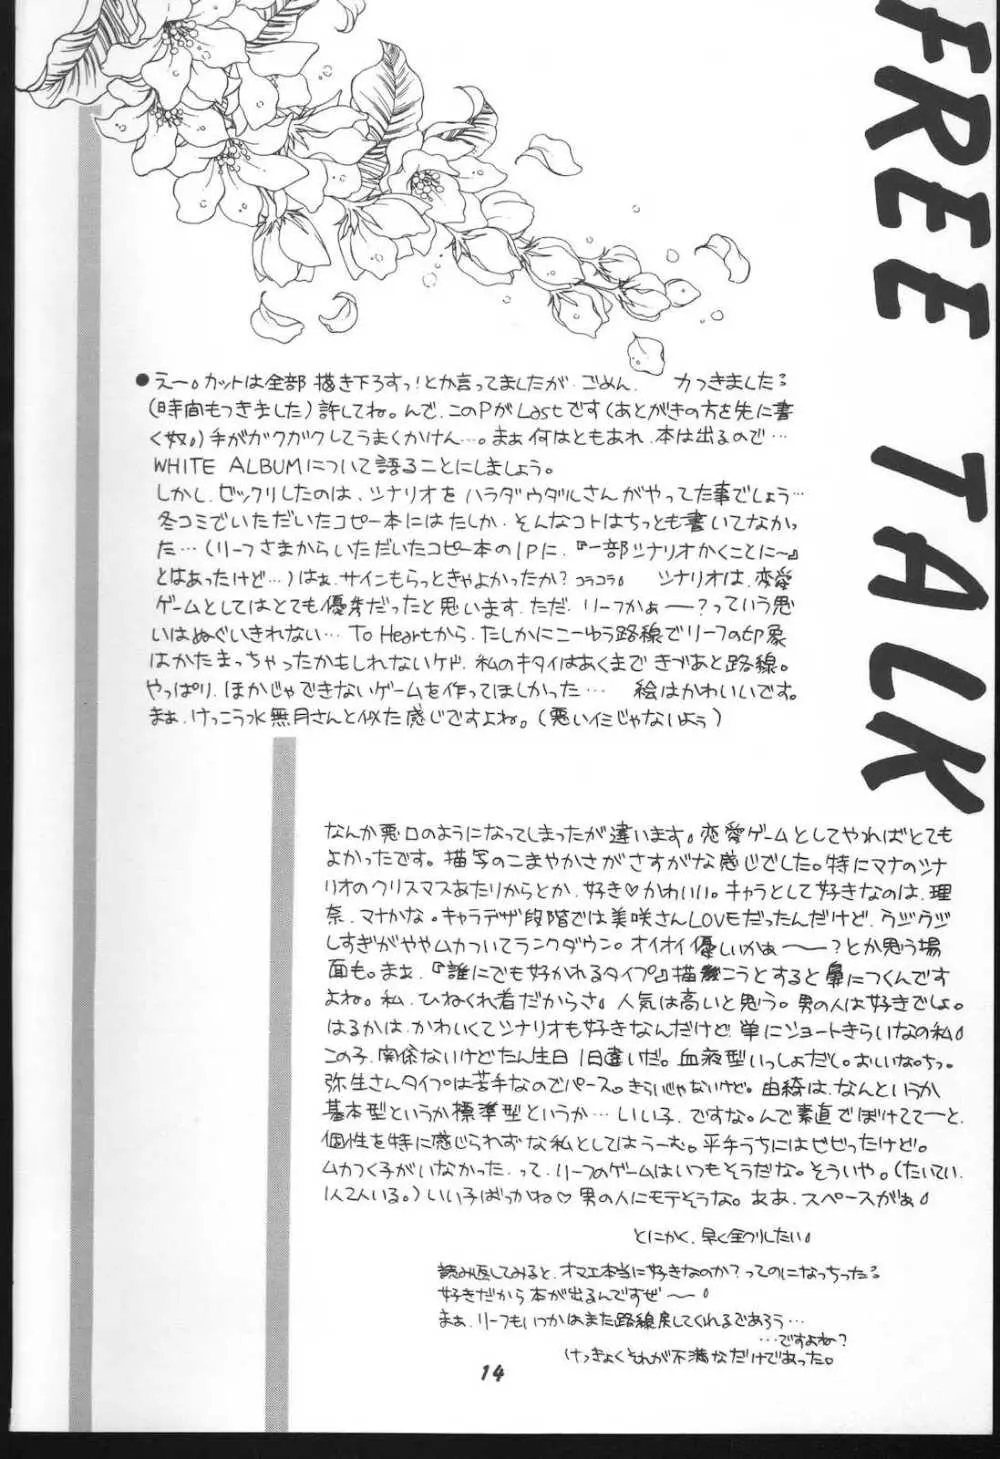 FREE TALK
●えー。カットは全部 描き下ろすっ!とか言ってましたが、ごめん、 力つきました:
(時間もつきました)許してね。んで、このPがLastです(あとがきの方を先に書
く奴。)手がガクガクしてうまくかけん…。まぁ何はともあれ、本は出るので…
WHITE ALBUMについて語ることにしましょう。
しかし、ビックリしたのは、シナリオを ハラダウダルさんがやってた事でしょう…
冬コミでいただいたコピー本にはたしか、そんなコトはちっとも書いてなかっ
た…(リーフさまからいただいたコピー本の1Pに、『一部シナリオかくことに〜』
とはあったけど…)はぁ、サインもらっときゃよかったか?コラコラ。 シナリオは、恋愛
ゲームとしてはとても優秀だったと思います。ただ、リーフかぁー?っていう思
いはぬぐいきれない… To Heartから、たしかにこーゆう路線でリーフの印象
はかたまっちゃったかもしれないケド、私のキタイはあくまで きづあと路線。
やっぱり、ほかじゃできないゲームを作ってほしかった… 絵はかわいいです。
まぁ、けっこう水無月さんと似た感じですよね。(悪いイミじゃないよぅ)
なんか悪口のようになってしまったが違います。恋愛ゲームとしてやればとても
よかったです。描写のこまやかさがさすがな感じでした。特にマナのシナ
リオのクリスマスあたりからとか、好き♡かわいい。キャラとして好きなのは、理
奈、マナかな。キャラデザ段階では美咲さんLOVEだったんだけど、ウジウジ
しすぎがややムカついてランクダウン。オイオイ優しいかぁー?とか思う場
面も。まぁ、『誰にでも好かれるタイプ』描こうとすると鼻につくんです
よね。私、ひねくれ者だからさ。人気は高いと思う。男の人は好きでしょ。
はるかは、かわいくてシナリオも好きなんだけど、単にショートきらいなの私。
この子、関係ないけどたん生日 1日違いだ。血液型いっしょだし。おしいなっっ。
弥生さんタイプは苦手なのでパース。きらいじゃないけど。由綺は、なんというか
基本型というか標準型というか… いい子、ですな。んで素直でぼけててーと、
個性を特に感じられずな私としてはうーむ。平手うちにはビビったけど。
ムカつく子がいなかった、って、リーフのゲームはいつもそうだな。そういや。(たいてい、
1人2人いる。)いい子ばっかね♡男の人にモテそうな。ああ、スペースがぁ
とにかく、早く全クリしたい。
読み返してみると、オマエ本当に好きなのか?ってのになっちった:
好きだから本が出るんですぜ〜!
まぁ、リーフもいつかはまた路線戻してくれるであろう…
…ですよね?
けっきょくそれが不満なだけであった。
14